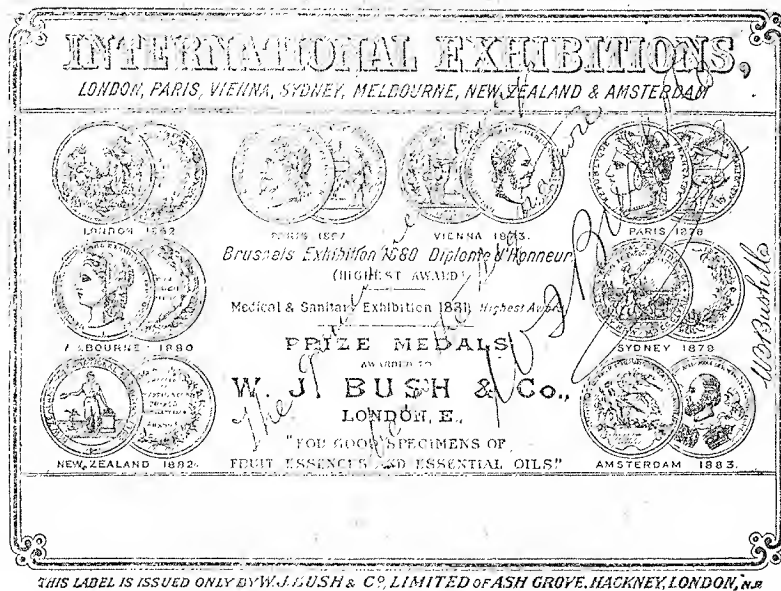 INTERNATIONAL EXHIBITIONS,
LONDON, PARIS, VIENNA, SYDNEY, MELBOURNE, NEW ZEALAND & AMSTERDAM
LONDON 1862
PARIS 1867
VIENNA 1873.
PARIS 1878
Brussels Exhibition 1880 Diplome d'Honneur
(HIGHEST AWARD)
Medical & Sanitary Exhibition 1881, Highest Award
MELBOURNE 1880
SYDNEY 1879
PRIZE MEDALS
AWARDED TO
W. J. BUSH & Co.,
LONDON, E.,
"FOR GOOD SPECIMENS OF
FRUIT ESSENCES AND ESSENTIAL OILS"
NEW ZEALAND 1882.
AMSTERDAM 1883.
The
signature
WJ Bush & Co
WJ Bush & Co
THIS LABEL IS ISSUED ONLY BY W. J. BUSH & Co, LIMITED OF ASH GROVE, HACKNEY, LONDON, N.E.